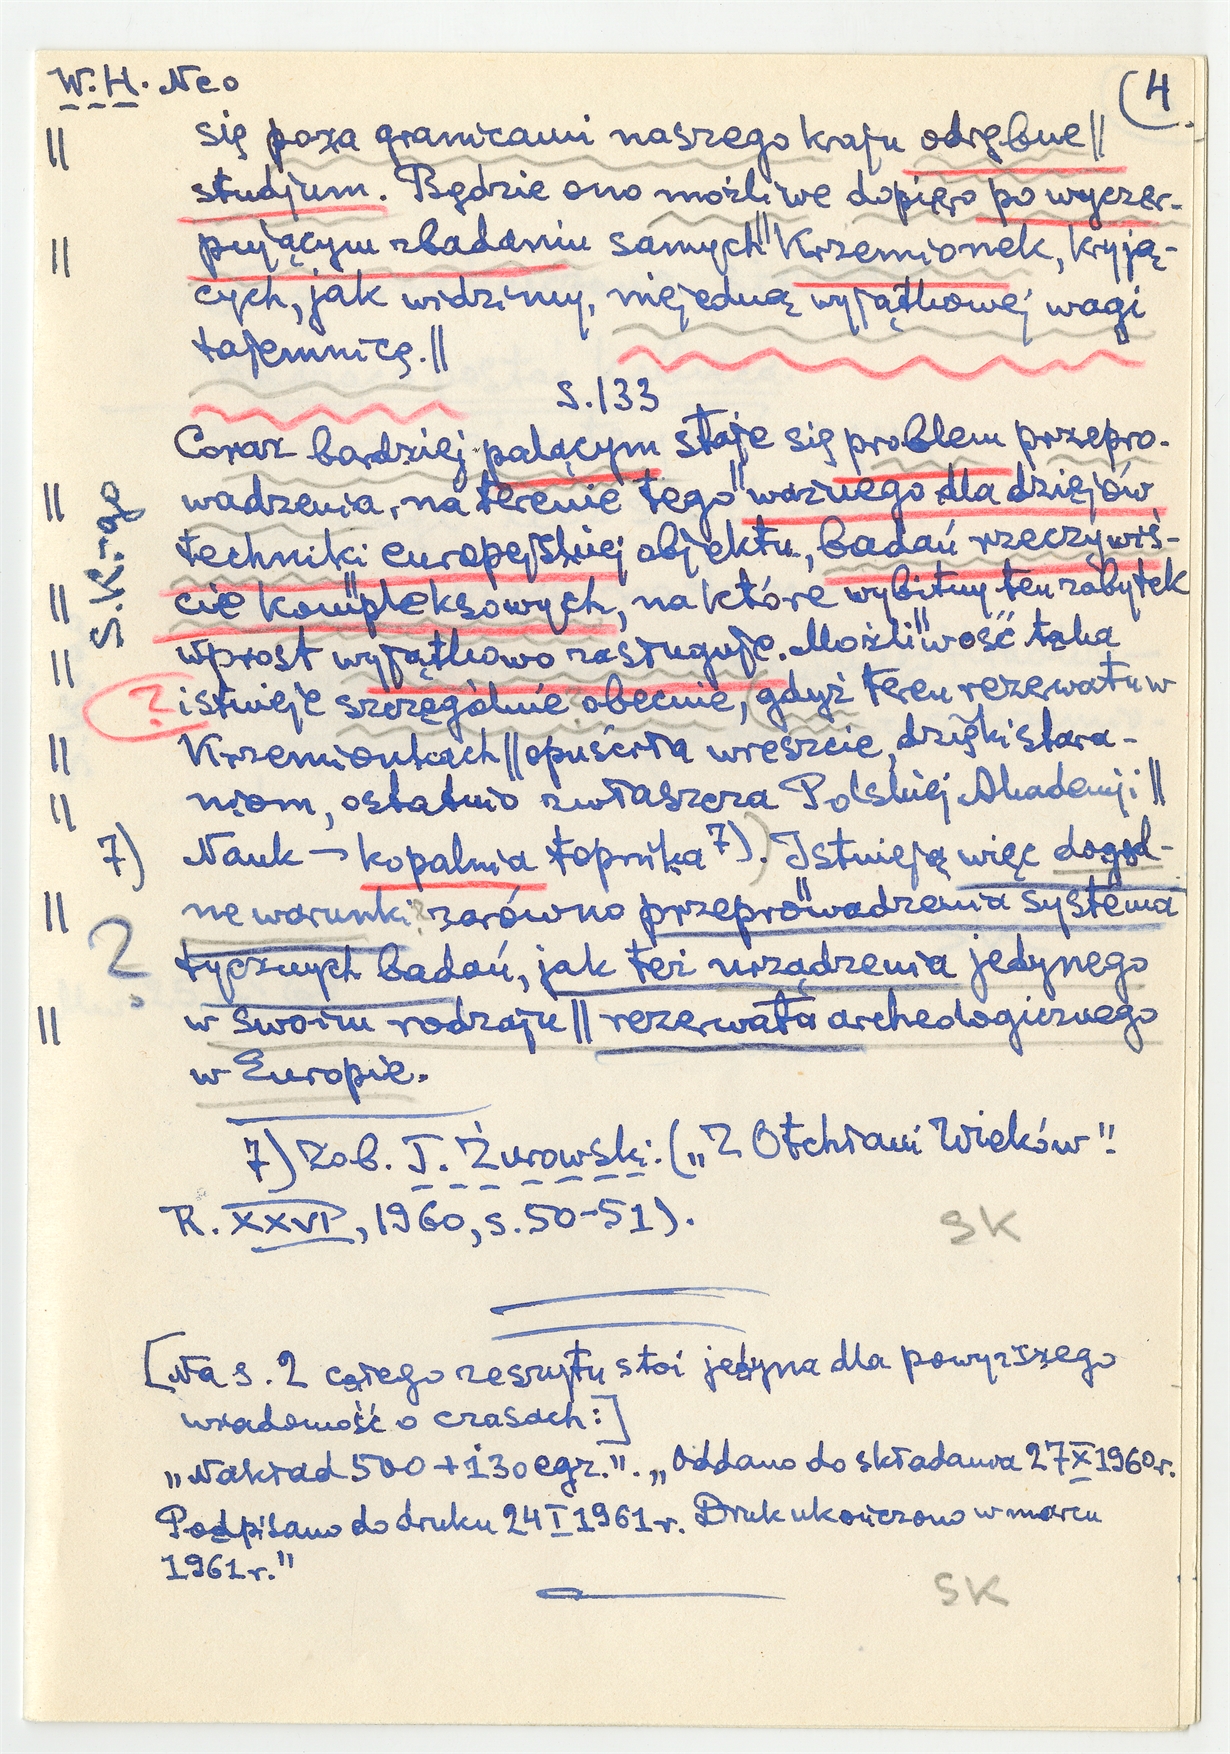 W.H. Neo
(4
|| się poza granicami naszego kraju odrębne||
studjum. Będzie ono możliwe dopiero po wyczer-
|| pującym zbadaniu samych || Krzemionek, kryją-
cych, jak widzimy, niejedną wyjątkowej wagi
tajemnicę.||
S.133
Coraz bardziej palącym staje się problem przepro-
|| wadzenia, na terenie tego || ważnego dla dziejów
S.K.-go
techniki europejskiej objektu, badań rzeczywiś-
|| cie kompleksowych, na które wybitny ten zabytek
|| wprost wyjątkowo zasługuje. Możliwość taka
? istnieje szczególnie obecnie, gdyż teren rezerwatu w
|| Krzemionkach || opuściła wreszcie, dzięki stara-
|| niom, ostatnio zwłaszcza Polskiej Akademji ||
7) Nauk → kopalnia topnika 7). Istnieją więc dogod-
|| ne warunki zarówno przeprowadzenia systema
? tycznych badań, jak też urządzenia jedynego
|| w swoim rodzaju || rezerwatu archeologicznego
w Europie.
7) Zob. T. Żurowski: („Z Otchłani Wieków":
R. XXVI, 1960, s. 50-51).
SK
[Na s. 2 całego zeszytu stoi jedyna dla powyższego
wiadomość o czasach:]
„Nakład 500 + 130 egz.". „Oddano do składania 27 X 1960 r.
Podpisano do druku 24 I 1961 r. Druk ukończono w marcu
1961 r."
SK